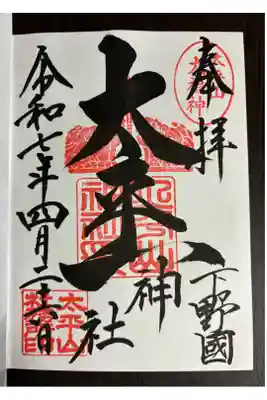 奉拝
下野國
太平山
神社
令和七年四月二十六日
太平山
社務所印